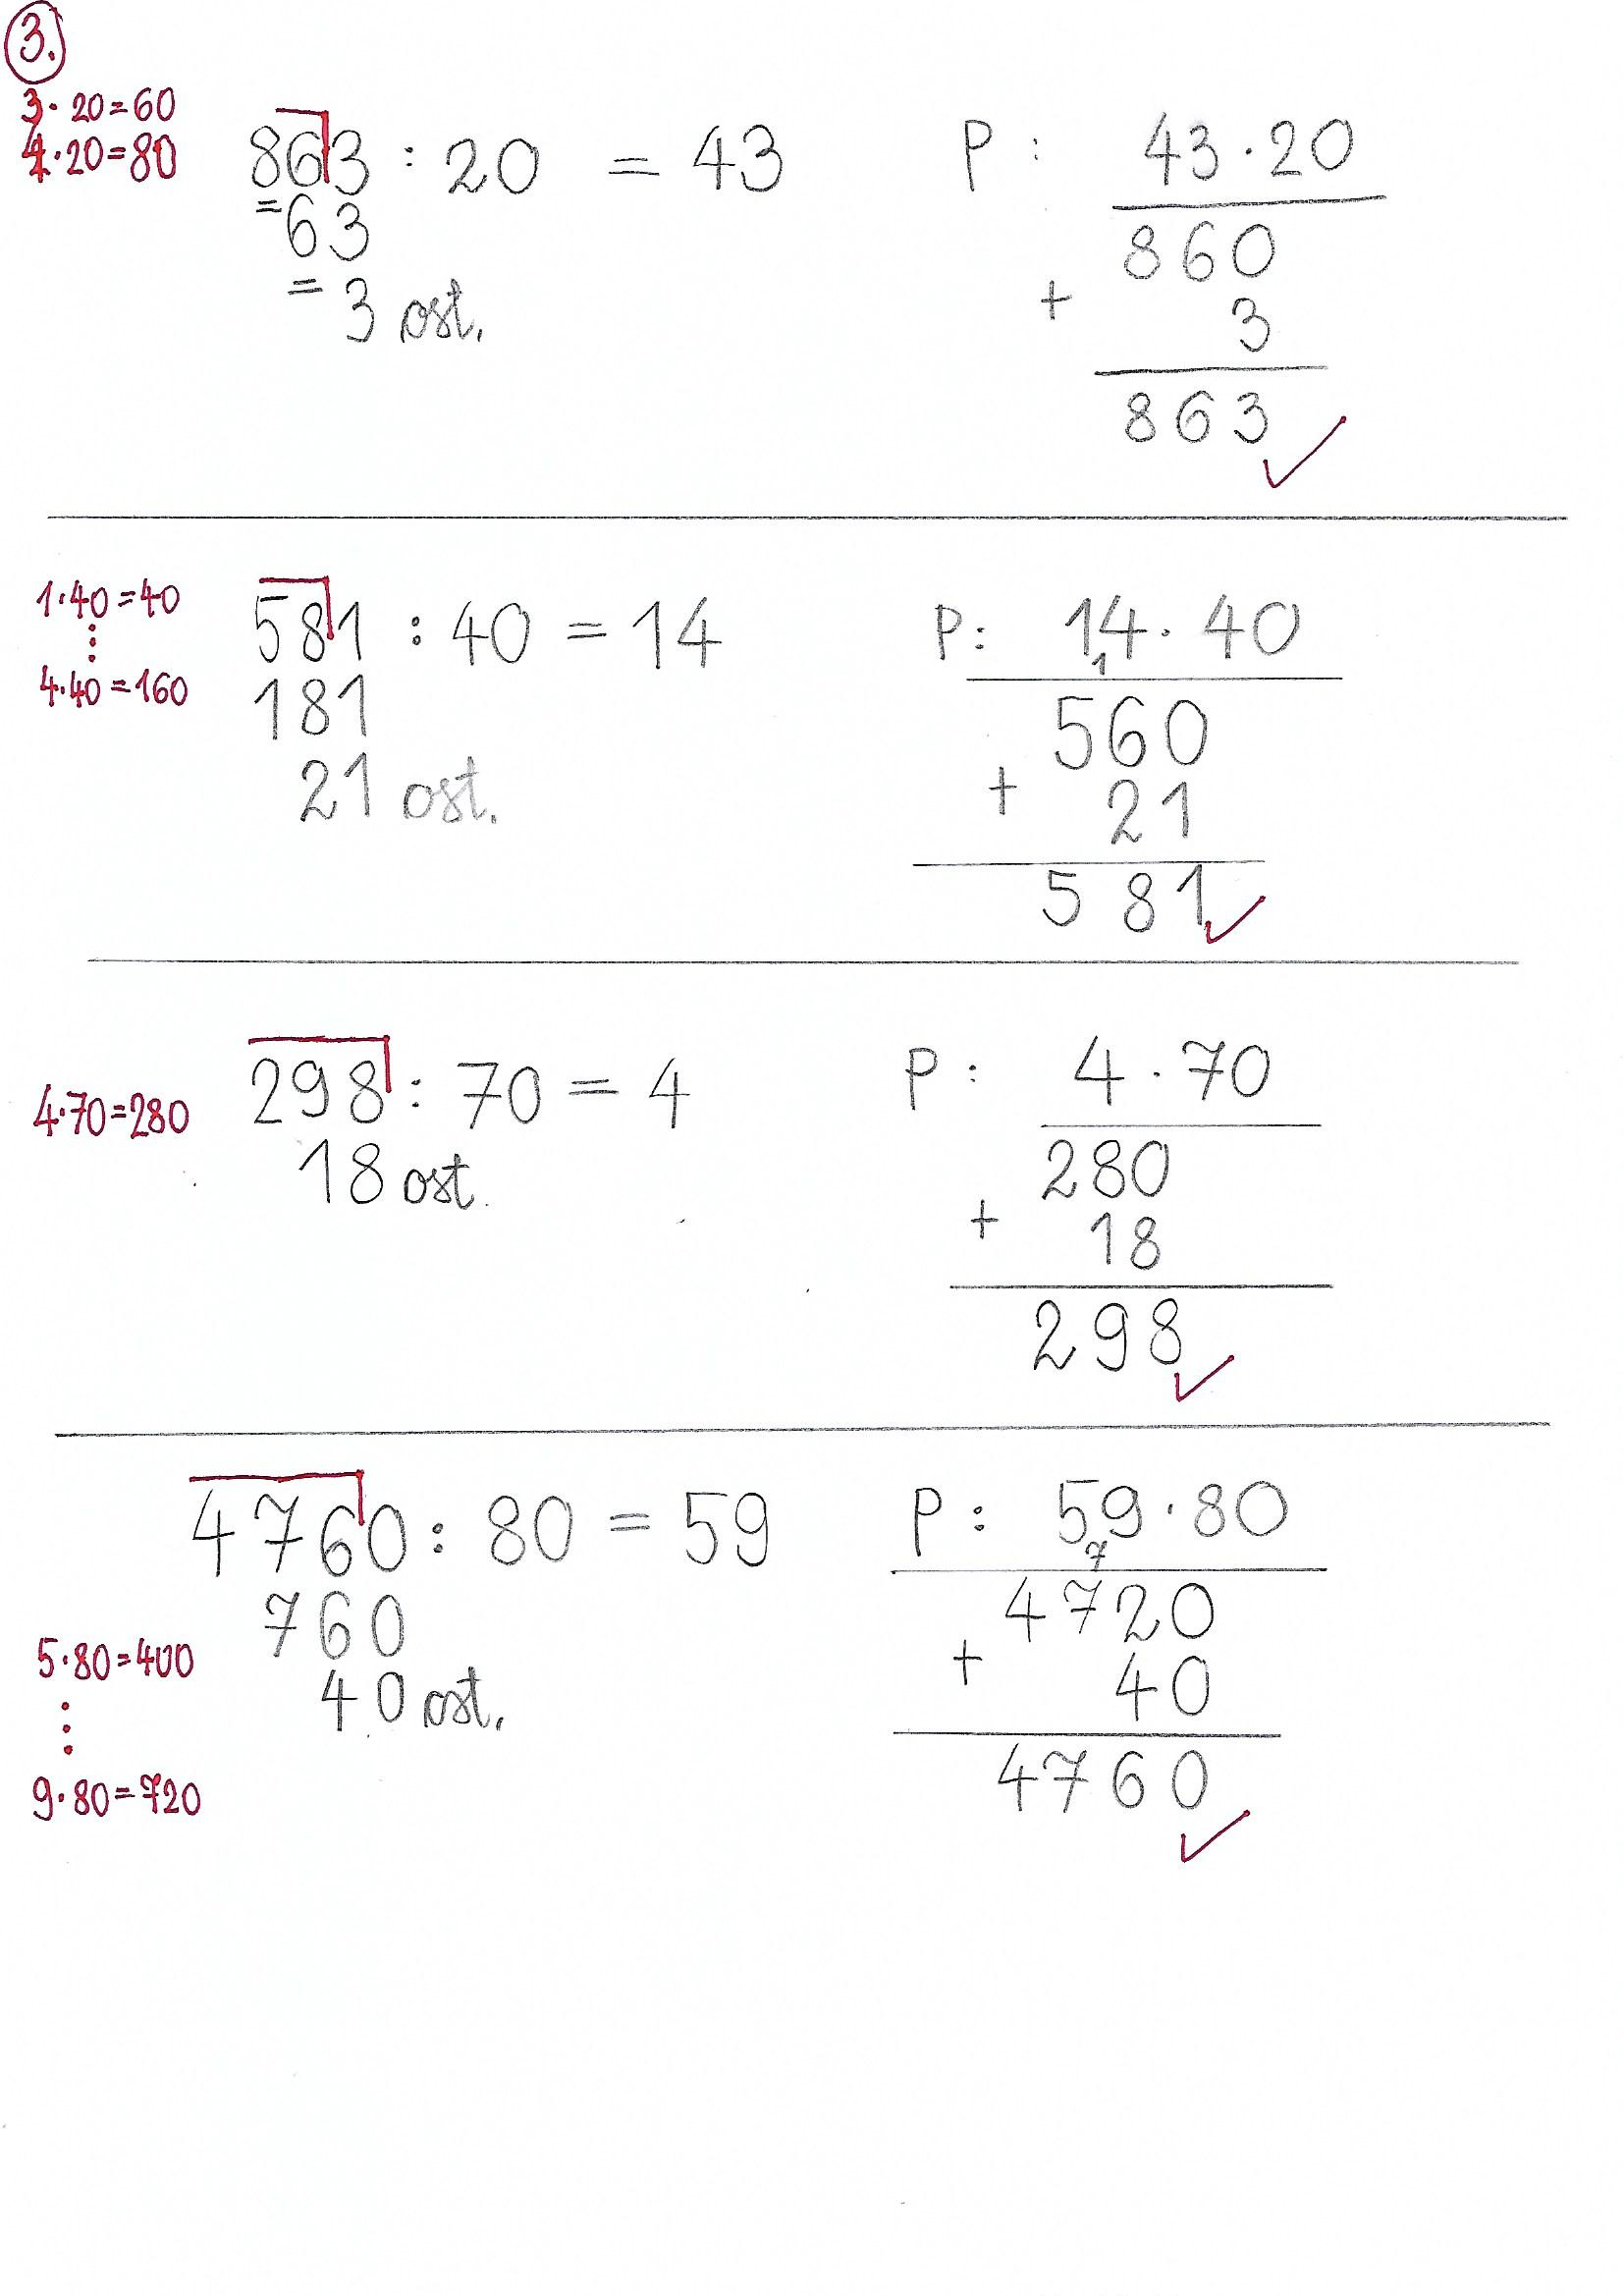 3.
3 · 20 = 60
4 · 20 = 80
863 : 20 = 43
= 63
= 3 ost.
P : 43 · 20
860
+ 3
863 ✓
1 · 40 = 40
⋮
4 · 40 = 160
581 : 40 = 14
181
21 ost.
P : 14 · 40
1
560
+ 21
581 ✓
4 · 70 = 280
298 : 70 = 4
18 ost.
P : 4 · 70
280
+ 18
298 ✓
4760 : 80 = 59
760
40 ost.
5 · 80 = 400
⋮
9 · 80 = 720
P : 59 · 80
7
4720
+ 40
4760 ✓